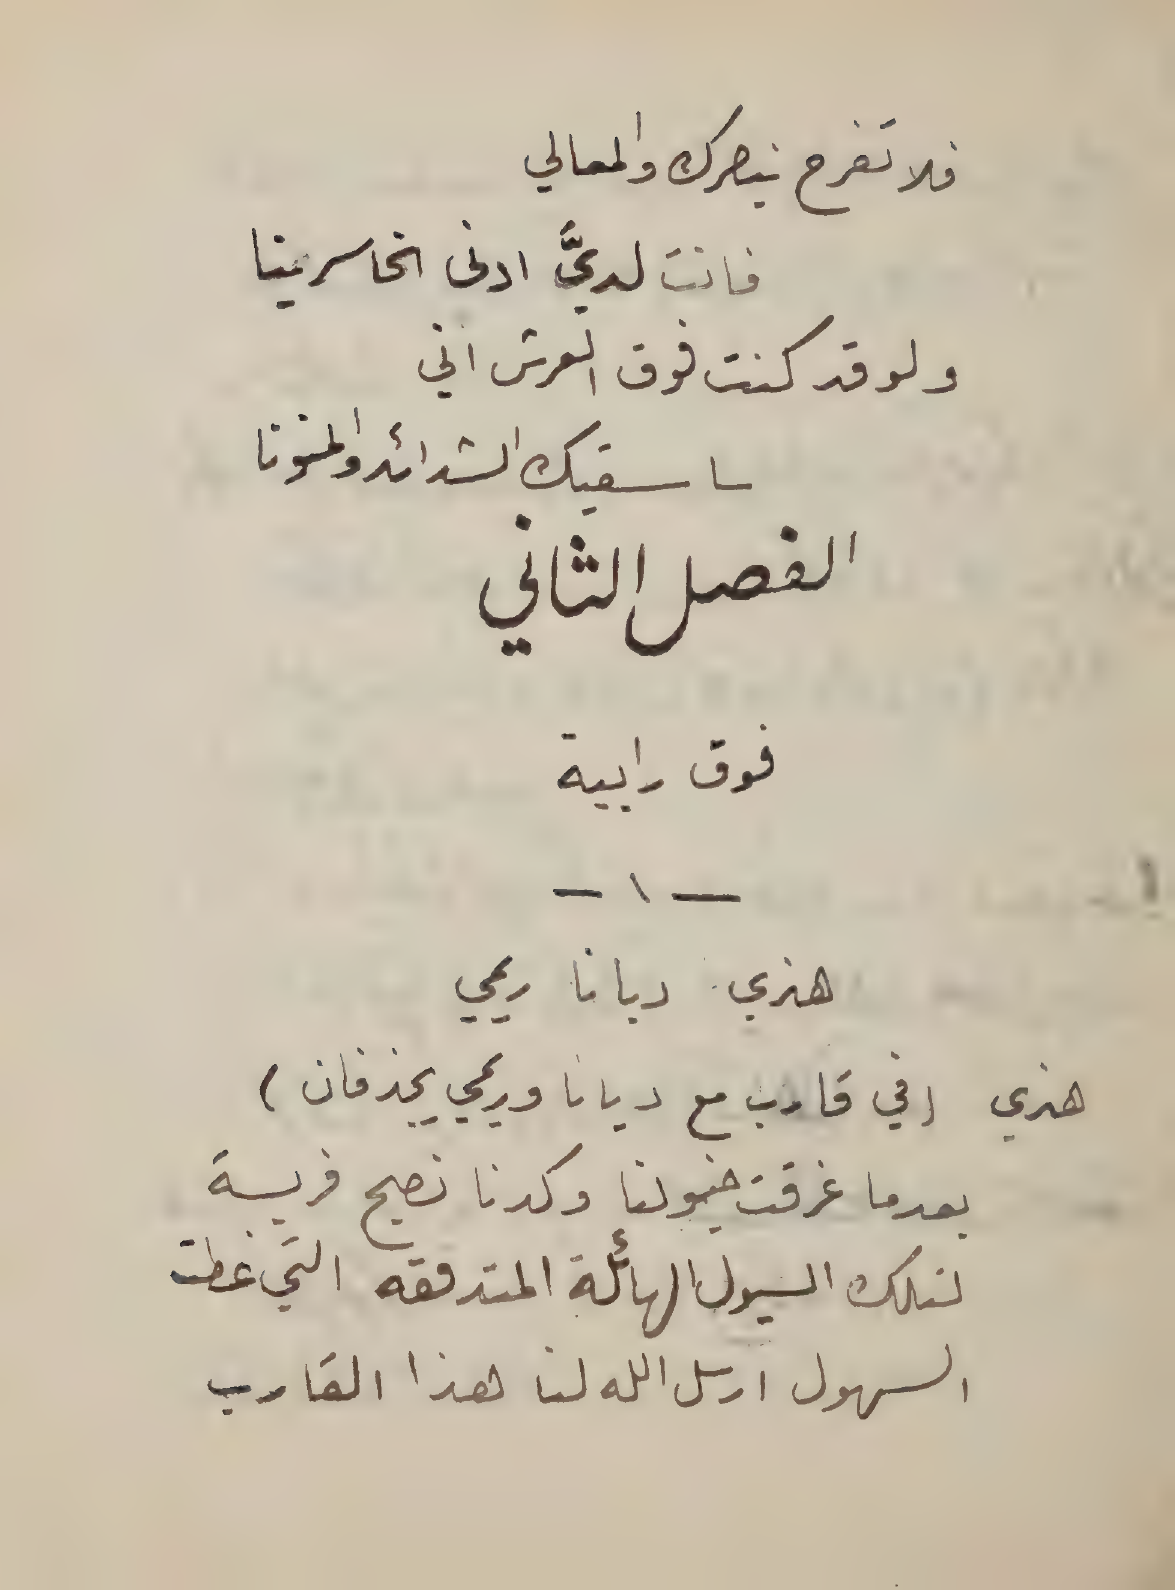 فلا تفرح بنصرك والمعالي
فانت لديَّ ادنى الخاسرينا
ولو قد كنت فوق العرش اني
ساسقيك الشدائد والمنونا
الفصل الثاني
فوق رابية
— ١ —
هنري ديانا ريمي
هنري (في قارب مع ديانا وريمي يجذفان)
بعدما غرقت خيولنا وكدنا نصبح فريسة
لتلك السيول الهائلة المتدفقه التي غطت
السهول ارسل الله لنا هذا القارب